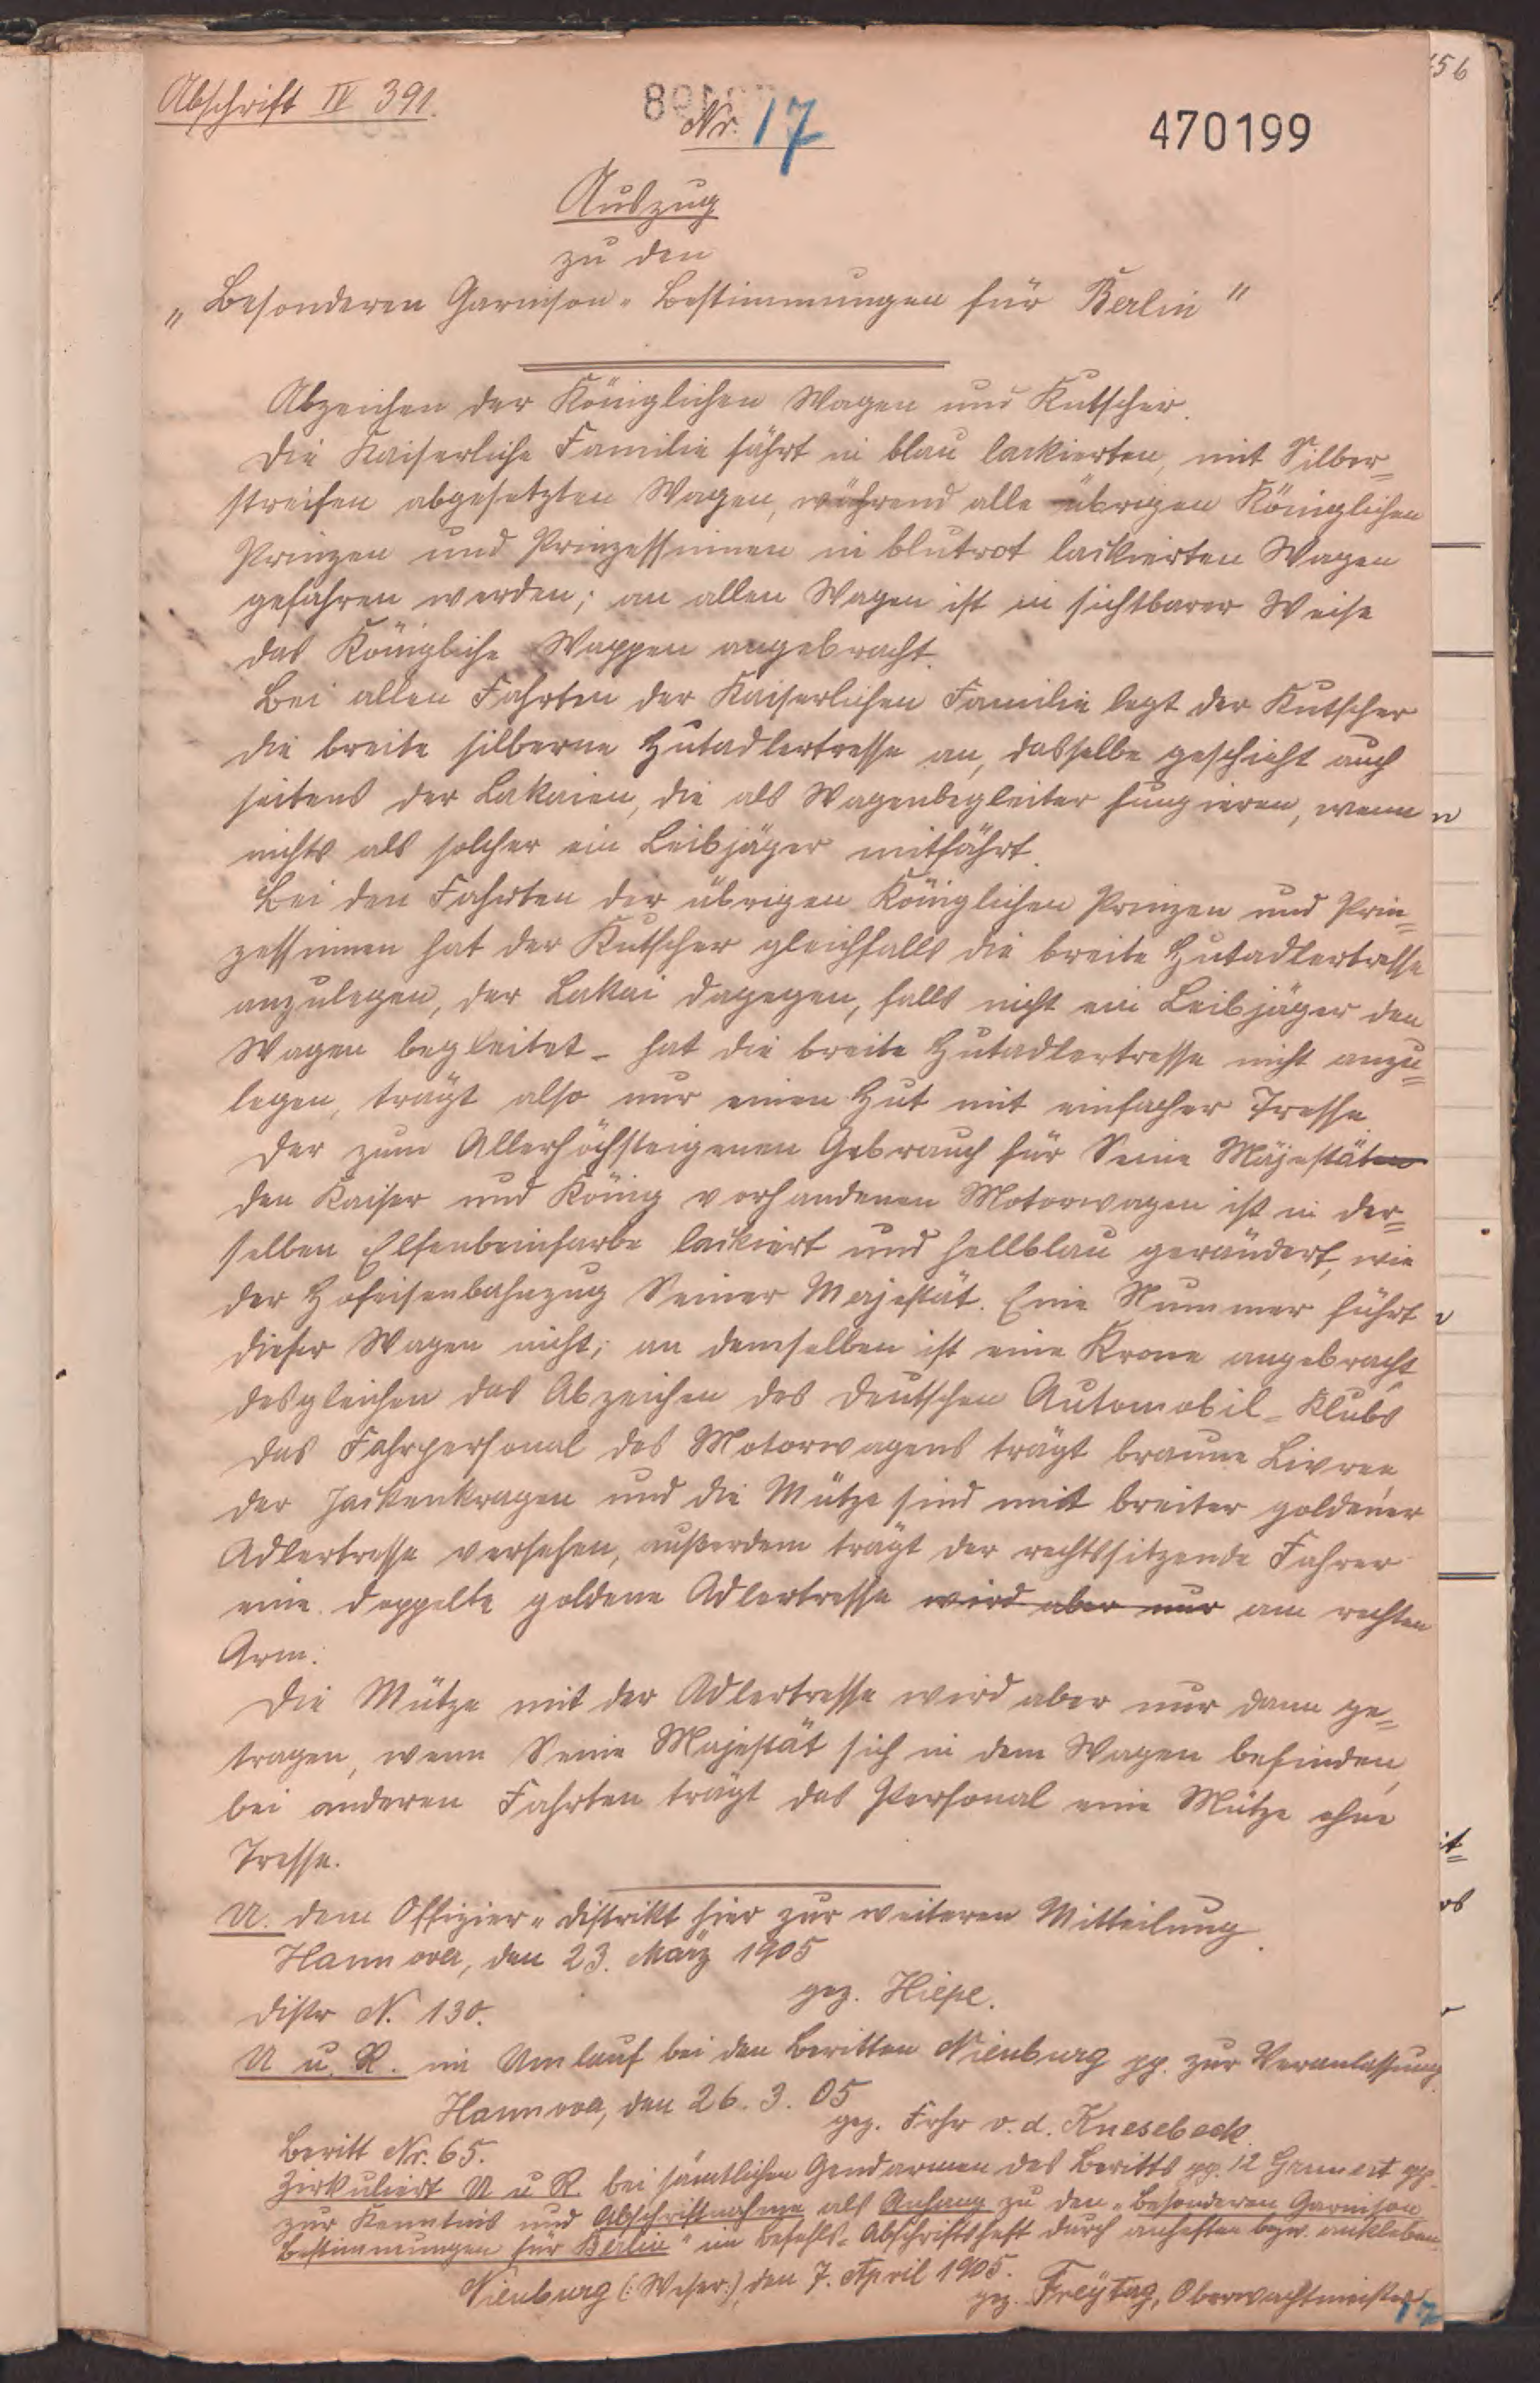 Abschrift IV 391.
Nr. 17
470199
Auszug
zu den
„Besonderen Garnison-Bestimmungen für Berlin"
Abzeichen der Königlichen Wagen und Kutscher.
Die Kaiserliche Familie fährt in blau lackierten, mit Silber-
streifen abgesetzten Wagen, während alle übrigen Königlichen
Prinzen und Prinzessinnen in blutrot lackierten Wagen
gefahren werden; an allen Wagen ist in sichtbarer Weise
das Königliche Wappen angebracht.
Bei allen Fahrten der Kaiserlichen Familie legt der Kutscher
die breite silberne Hutadlertresse an, dasselbe geschieht auch
seitens der Lakaien, die als Wagenbegleiter fungieren, wenn
nichts als solcher ein Leibjäger mitfährt.
Bei den Fahrten der übrigen Königlichen Prinzen und Prin-
zessinnen hat der Kutscher gleichfalls die breite Hutadlertresse
anzulegen, der Lakai dagegen, falls nicht ein Leibjäger den
Wagen begleitet - hat die breite Hutadlertresse nicht anzu-
legen, trägt also nur einen Hut mit einfacher Tresse.
Der zum Allerhöchsteigenen Gebrauch für Seine Majestäten
den Kaiser und König vorhandenen Motorwagen ist in der-
selben Elfenbeinfarbe lackiert und hellblau gerändert, wie
der Hofeisenbahnzug Seiner Majestät. Eine Nummer führt
dieser Wagen nicht; an demselben ist eine Krone angebracht,
desgleichen das Abzeichen des Deutschen Automobil-Klubs
Das Fahrpersonal des Motorwagens trägt braune Livree,
der Jackenkragen und die Mütze sind mit breiter goldener
Adlertresse versehen, außerdem trägt der rechtssitzende Fahrer
eine doppelte goldene Adlertresse wird aber nur am rechten
Arm.
Die Mütze mit der Adlertresse wird aber nur dann ge-
tragen, wenn Seine Majestät sich in dem Wagen befinden,
bei anderen Fahrten trägt das Personal eine Mütze ohne
Tresse.
U. dem Offizier-Distrikt hier zur weiteren Mitteilung.
Hannover, den 23. März 1905
gez. Hiepe.
Distr N. 130.
U u. R. im Umlauf bei den Beritten Nienburg pp. zur Veranlassung.
Hannover, den 26. 3. 05
gez. Frhr v. d. Knesebeck.
Beritt Nr. 65.
Zirkuliert U u R. bei sämtlichen Gendarmen des Beritts pp. 12 Grunert pp.
zur Kenntnis und Abschriftnahme als Anhang zu den „Besonderen Garnison
Bestimmungen für Berlin" im Befehls-Abschriftsheft durch anheften bezw. ankleben.
Nienburg (:Weser:), den 7. April 1905.
gez. Freytag, Oberwachtmeister
17